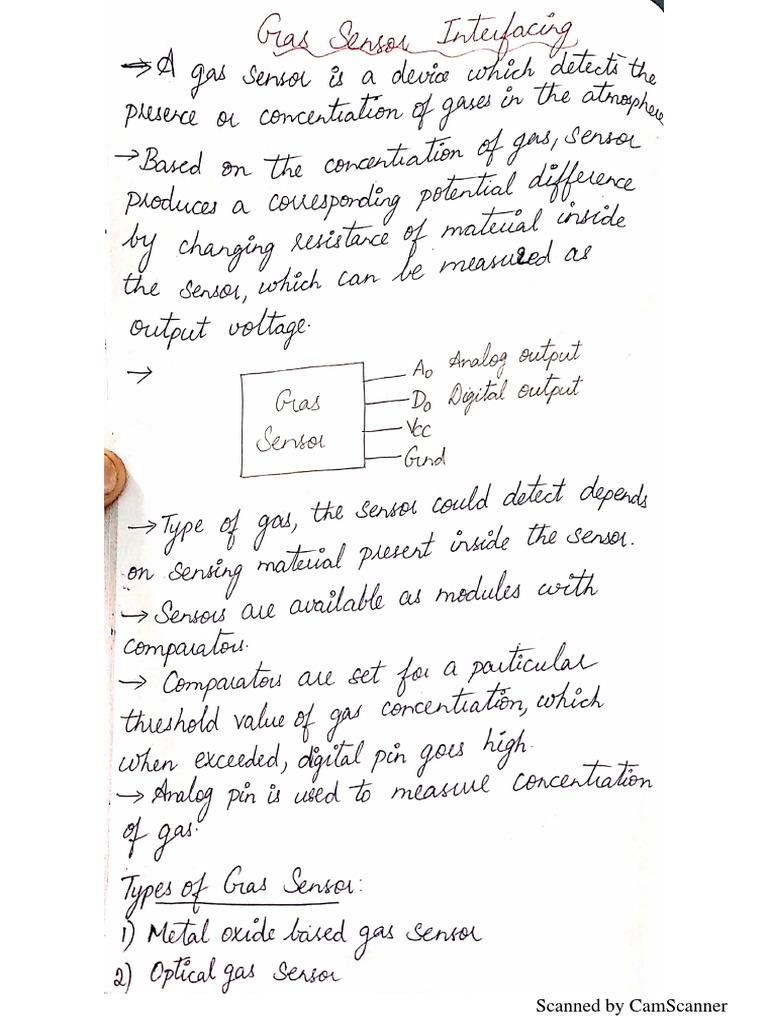 Gas Sensor Interfacing
→ A gas sensor is a device which detects the
presence or concentration of gases in the atmosphere
→ Based on the concentration of gas, sensor
produces a corresponding potential difference
by changing resistance of material inside
the sensor, which can be measured as
output voltage.
→
Gas
Sensor
A0 Analog output
D0 Digital output
Vcc
Gnd
→ Type of gas, the sensor could detect depends
on sensing material present inside the sensor.
→ Sensors are available as modules with
comparators.
→ Comparators are set for a particular
threshold value of gas concentration, which
when exceeded, digital pin goes high.
→ Analog pin is used to measure concentration
of gas.
Types of Gas Sensor:
1) Metal oxide based gas sensor
2) Optical gas sensor
Scanned by CamScanner